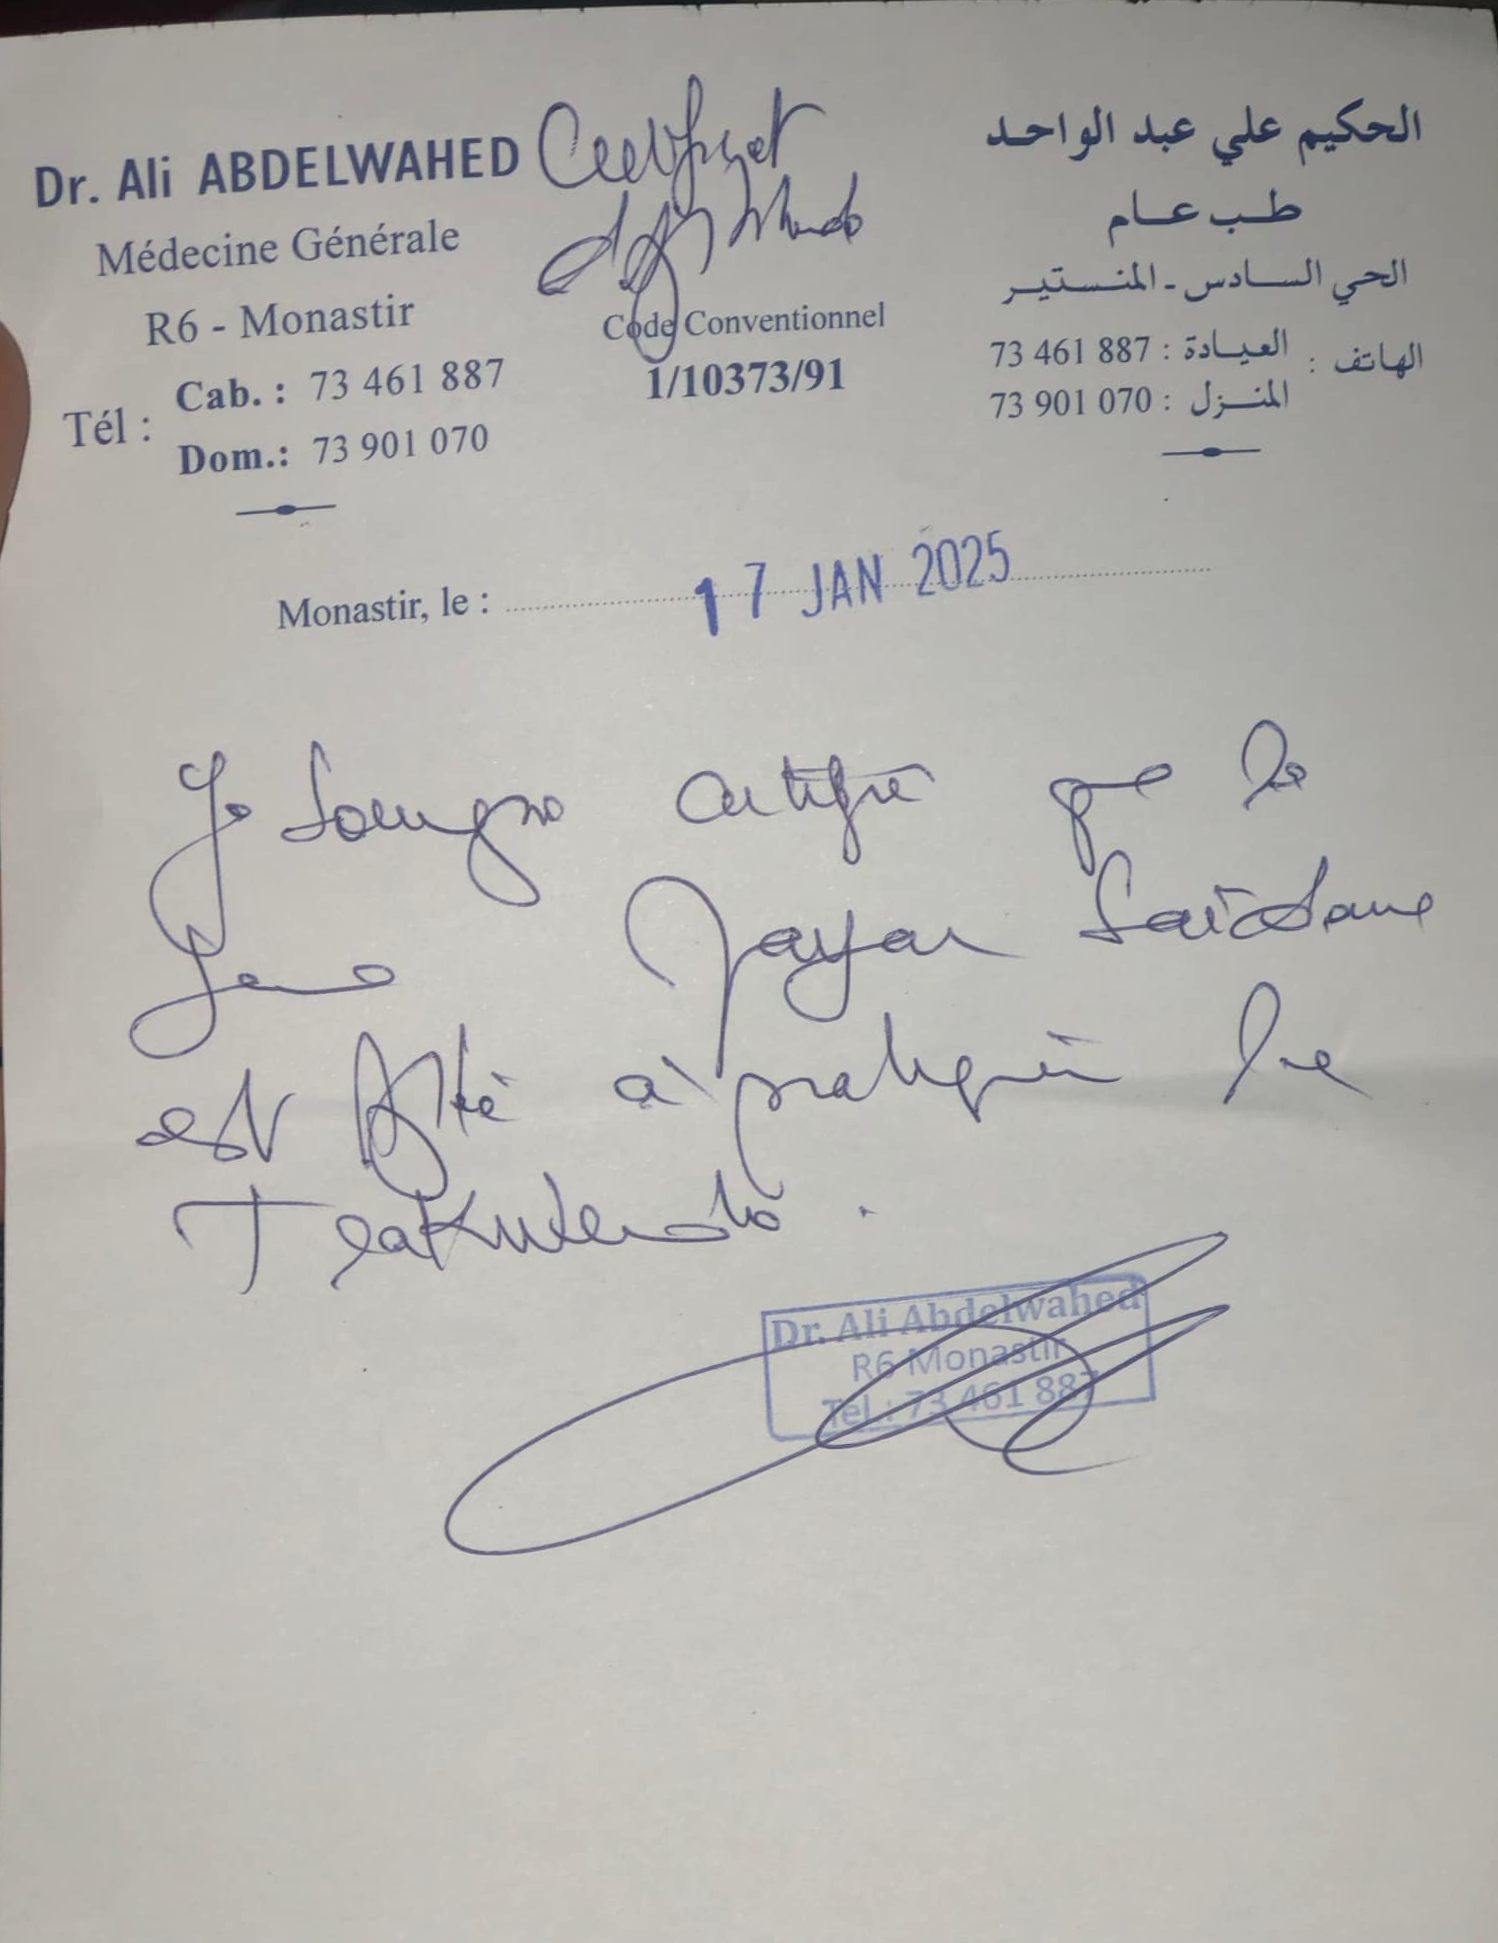 Dr. Ali ABDELWAHED
Médecine Générale
R6 - Monastir
Tél :
Cab. : 73 461 887
Dom.: 73 901 070
Certificat
d'aptitude
Code Conventionnel
1/10373/91
الحكيم علي عبد الواحد
طب عام
الحي السادس - المنستير
الهاتف :
العيادة : 73 461 887
المنزل : 73 901 070
Monastir, le : 17 JAN 2025
Je soussigné certifie que le
Jeune Saidane
est apte à pratiquer le
Teakwendo .
Dr. Ali Abdelwahed
R6 Monastir
Tel : 73 461 887